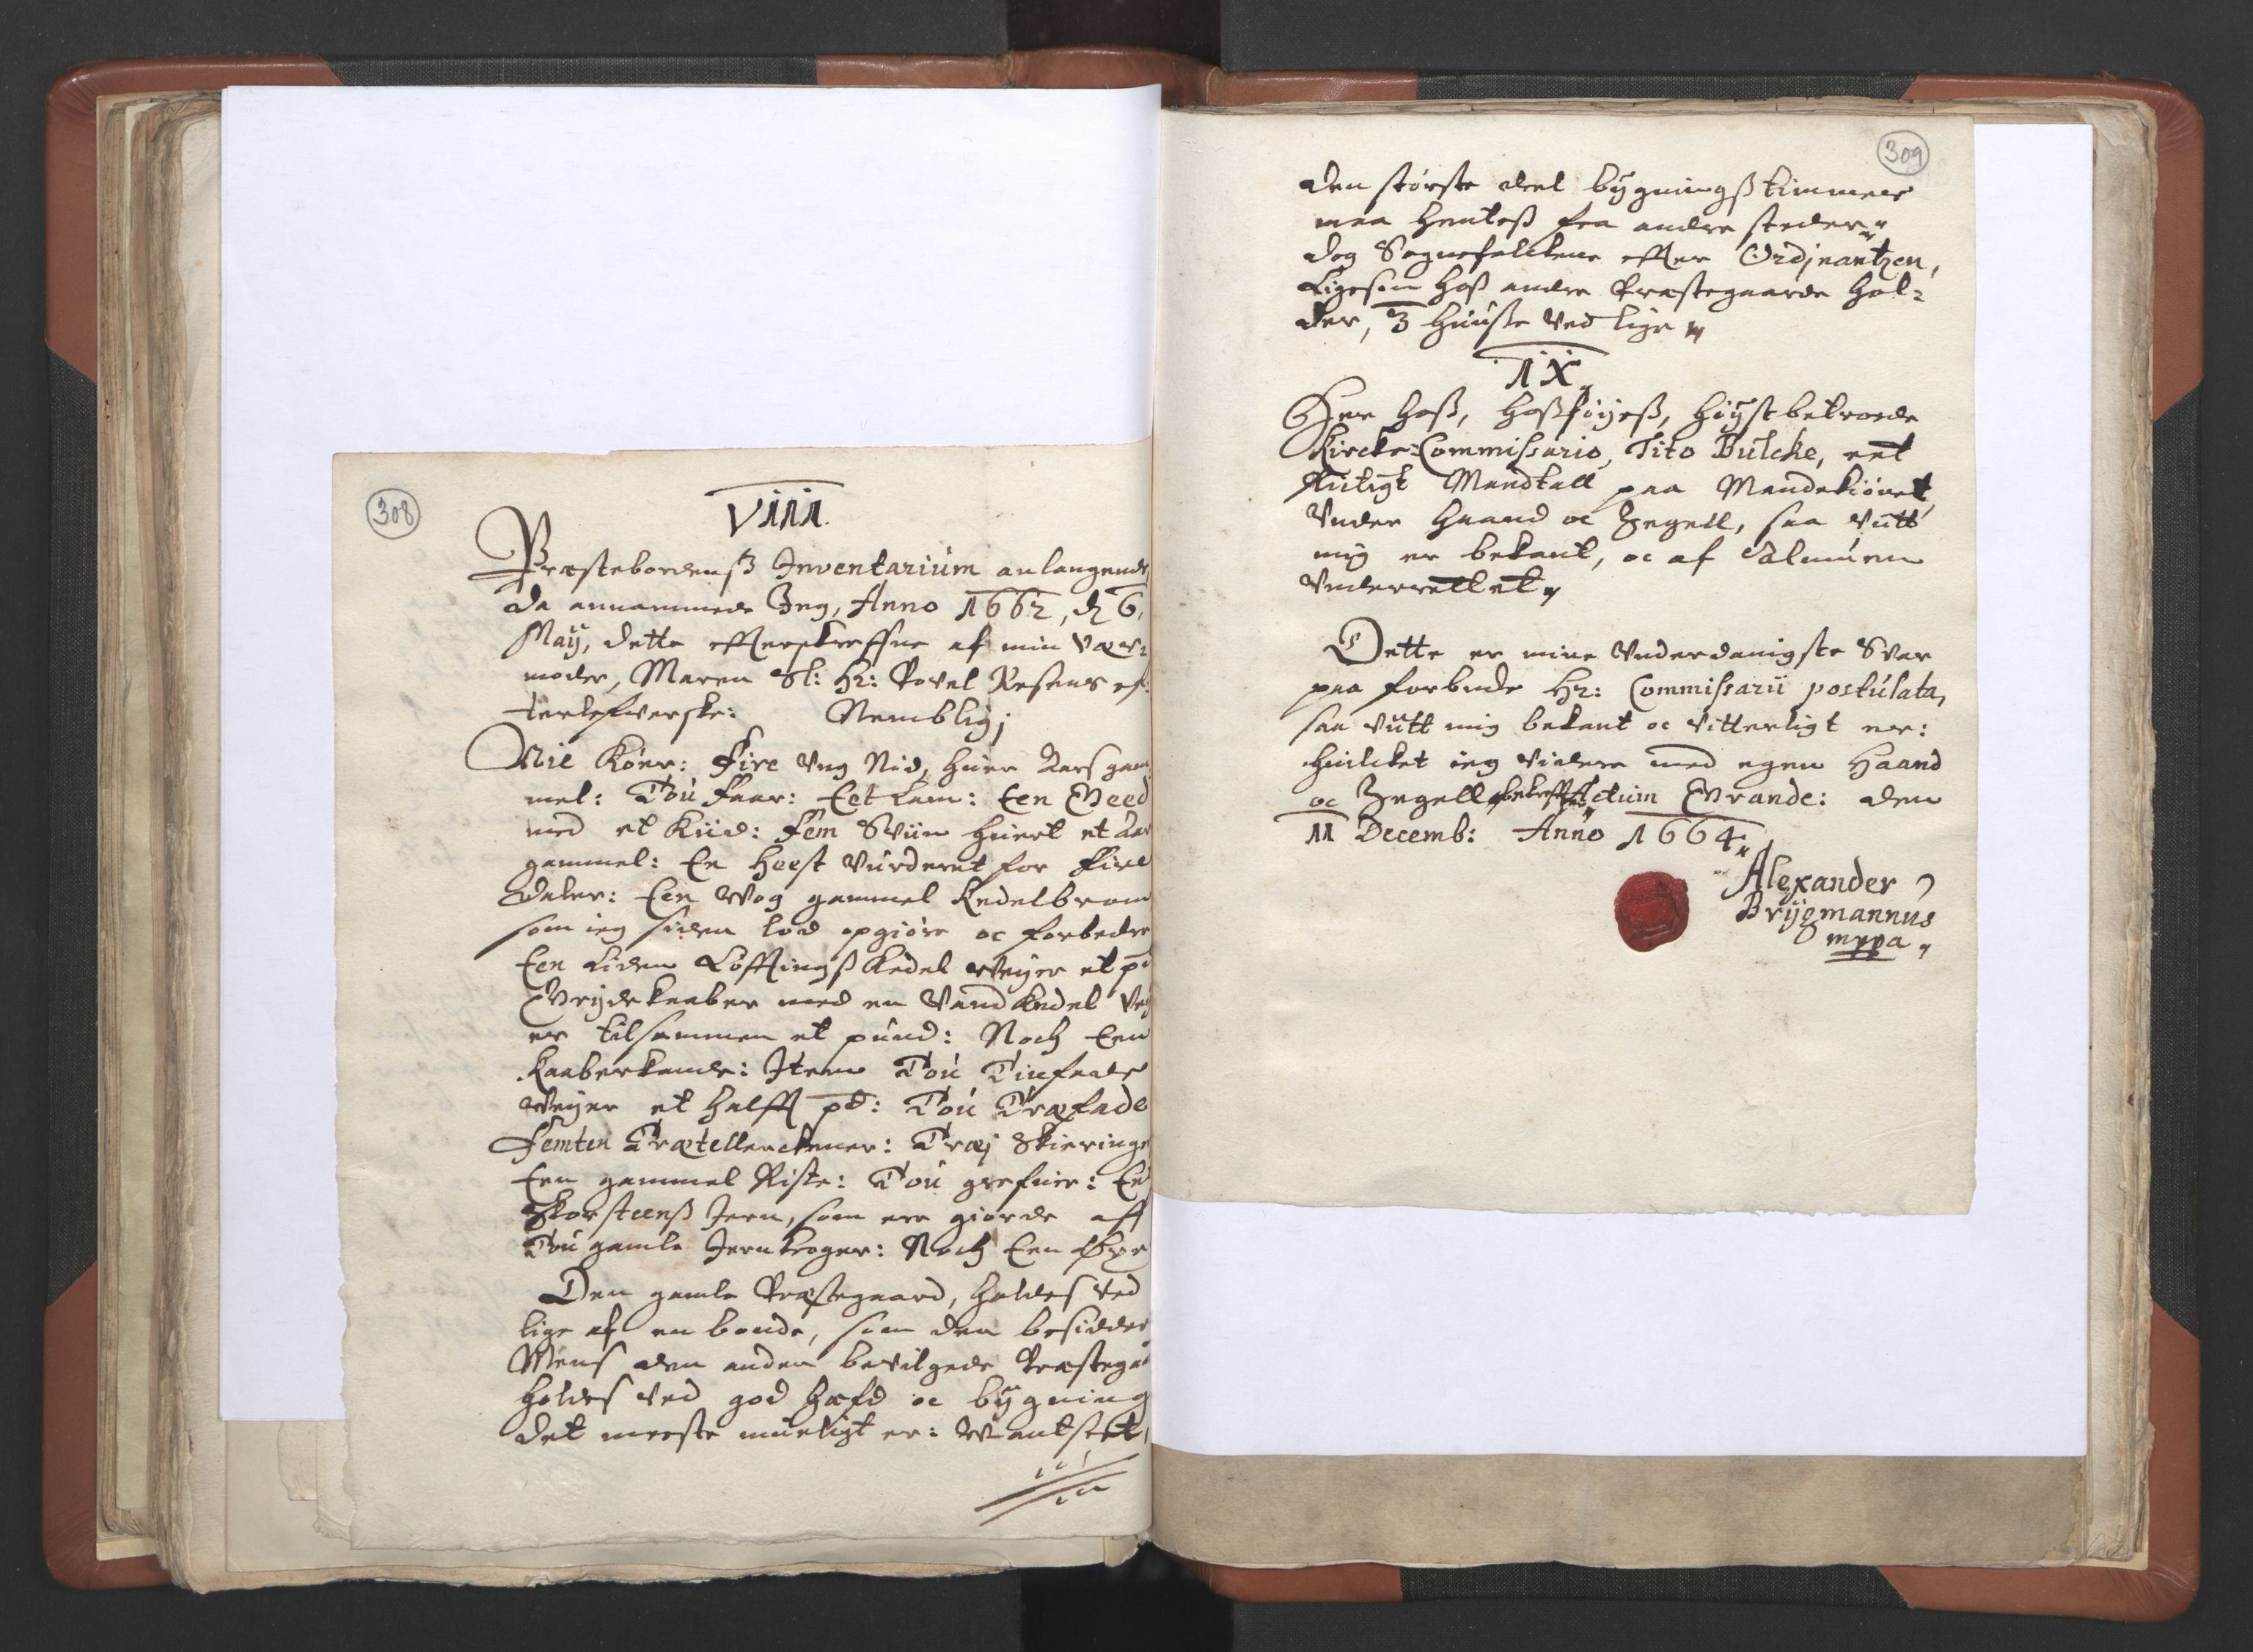 308
VIII.
Præstebordenß Inventarium anlangende
da annammede Jeg, Anno 1662, d 6,
Maij, dette effterskreffne af min Vær-
moder, Maren Sl: Hr: Povel Resens ef-
terlefverske: Nemblig;
Nie Køer: Fire Ung Nød, huer Aars gam
mel: Tou Faar: Eet Lam: Een Geed
med et Kiid: Fem Sviin huert et Aar
gammel: En Heest Vurderet for Fire
Daler: Een Wog gammel Kedelbrom
som ieg siden lod opgiøre oc forbedre
Een Liden Løfftingß Kedel Weyer et pd
Grydekaaber med en Vand Kedel Vey
er tilsammen et pund: Noch Een
Kaaberkande: Item Tou Tinfade
Weyer et halfft pd: Tou Træfade
Femten Trætellerckener: Træj Skieringe
Een gammel Riste: Tou grefuer: Eet
Skorsteenß Jern, som ere giorde aff
Tou gamle Jernkroger: Noch Een Øxe
Den gamle Præstegaard, holdes ved
lige af en bonde, som den besidder
Mens den anden bevilgede Præstega
holdes ved god hæfd oc bygning
det meeste mueligt er: Wantset,
309
den største deel bygningß timmer
maa henteß fra andre steder
dog Sognefolckene effter Ordjnantzen,
Ligesom hoß andre Præstegaarde hol-
der, 3 Huuse ved lige
IX
Her hoß, hoßføyeß, høystbetroede
Kircke-Commissario, Tito Bulcke, eet
Rictigt Mandtall paa Mandekiønet
Under Haand oc Zegell, saa vitt
mig er bekant, oc af Almuen
Underrettet
Dette er mine Underdanigste Svar
paa forbude Hr: Commissarii postulata,
saa vitt mig bekant oc vitterligt er:
huilcket ieg videre med egen Haand
oc Zegell bekreffter Actum Grande: den
11 Decemb: Anno 1664
Alexander
Brijgmannus
mppa